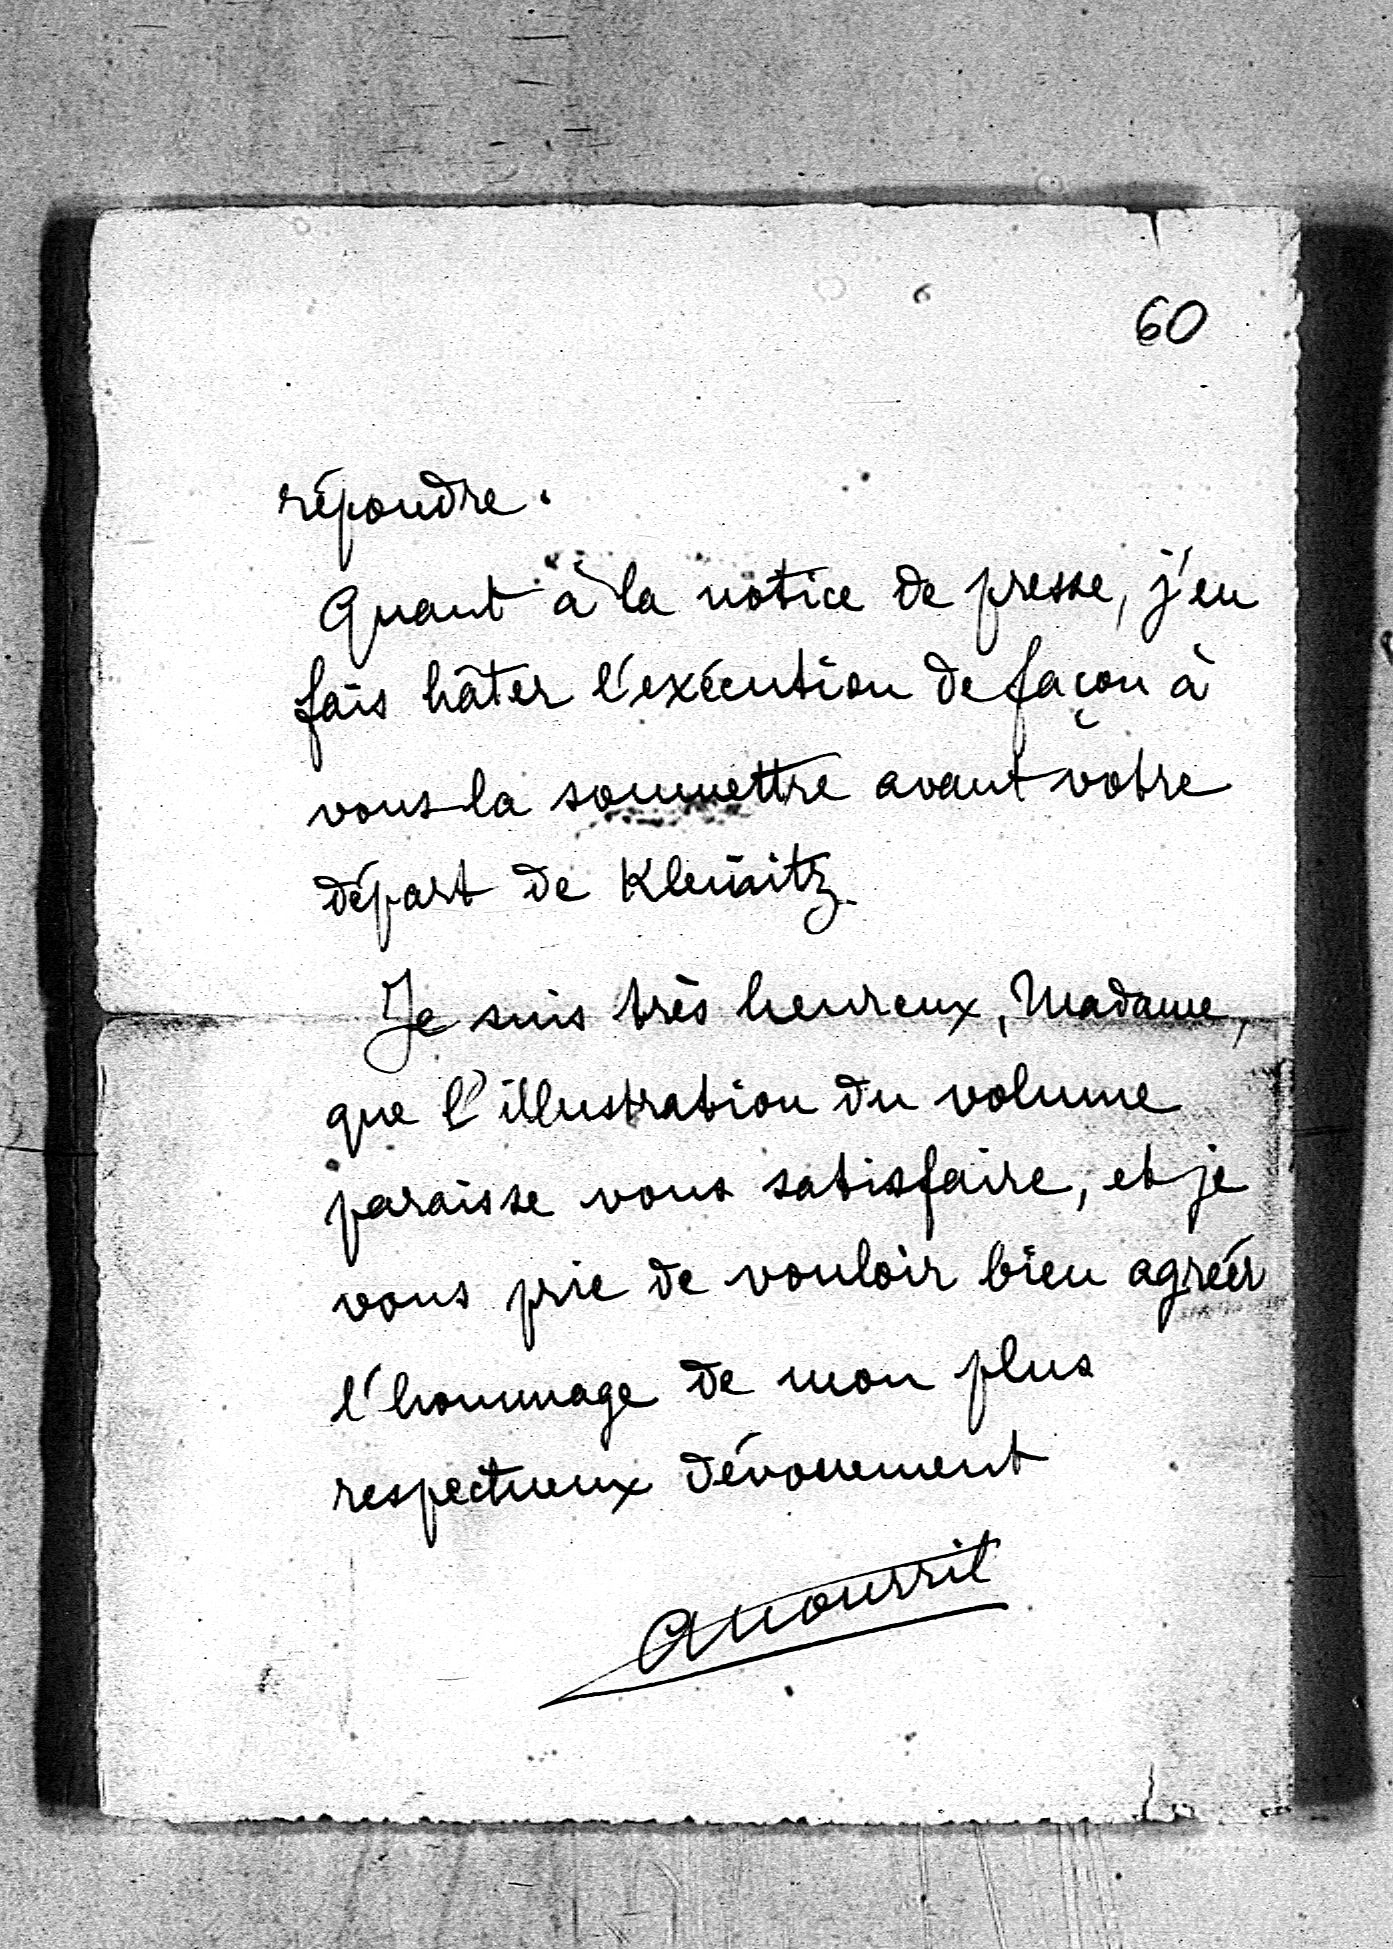 60
répondre.
Quant à la notice de presse, j'en
fais hâter l'exécution de façon à
vous la soumettre avant votre
départ de Kleinitz.
Je suis très heureux, Madame,
que l'illustration du volume
paraisse vous satisfaire, et je
vous prie de vouloir bien agréer
l'hommage de mon plus
respectueux dévouement
ANourrit